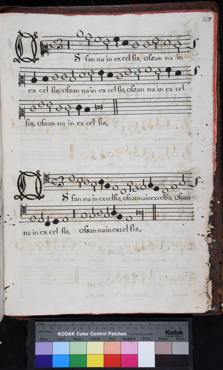 O
S
san na in ex cel sis, osian na in
ex cel sis, osian na in ex cel sis, osian na in ex cel
sis, osian na in ex cel sis,
O
S
san na in excelsis, osiannainexcelsis, osian
na in ex cel sis, osian nainexcelsis,
KODAK Color Control Patches
Kodak